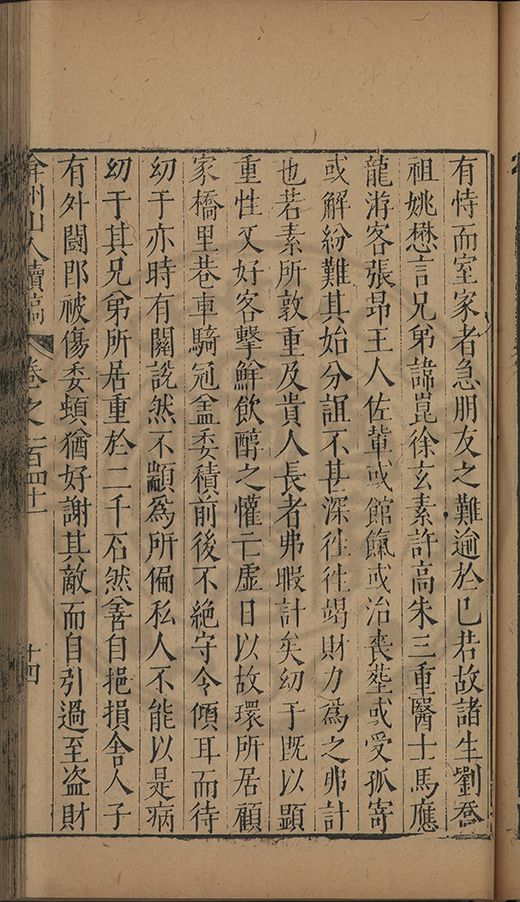 有恃而室家者急朋友之難逾於已若故諸生劉喬
祖姚懋言兄弟諱崑徐玄素許高朱三重醫士馬應
龍游客張昻王人佐輩或館餼或治喪塟或受孤寄
或解紛難其始分誼不甚深徃徃竭財力爲之弗計
也若素所敦重及貴人長者弗暇計矣幼于既以顯
重性又好客擊鮮飲醇之懽亡虛日以故環所居顧
家橋里巷車騎冠盖委積前後不絕守令傾耳而待
幼于亦時有關說然不顓爲所偏私人不能以是病
幼于其兄弟所居重於二千石然善自挹損舍人子
有外鬭郎被傷委頓猶好謝其敵而自引過至盗財
弇州山人續稿 卷之一百四十一 十四